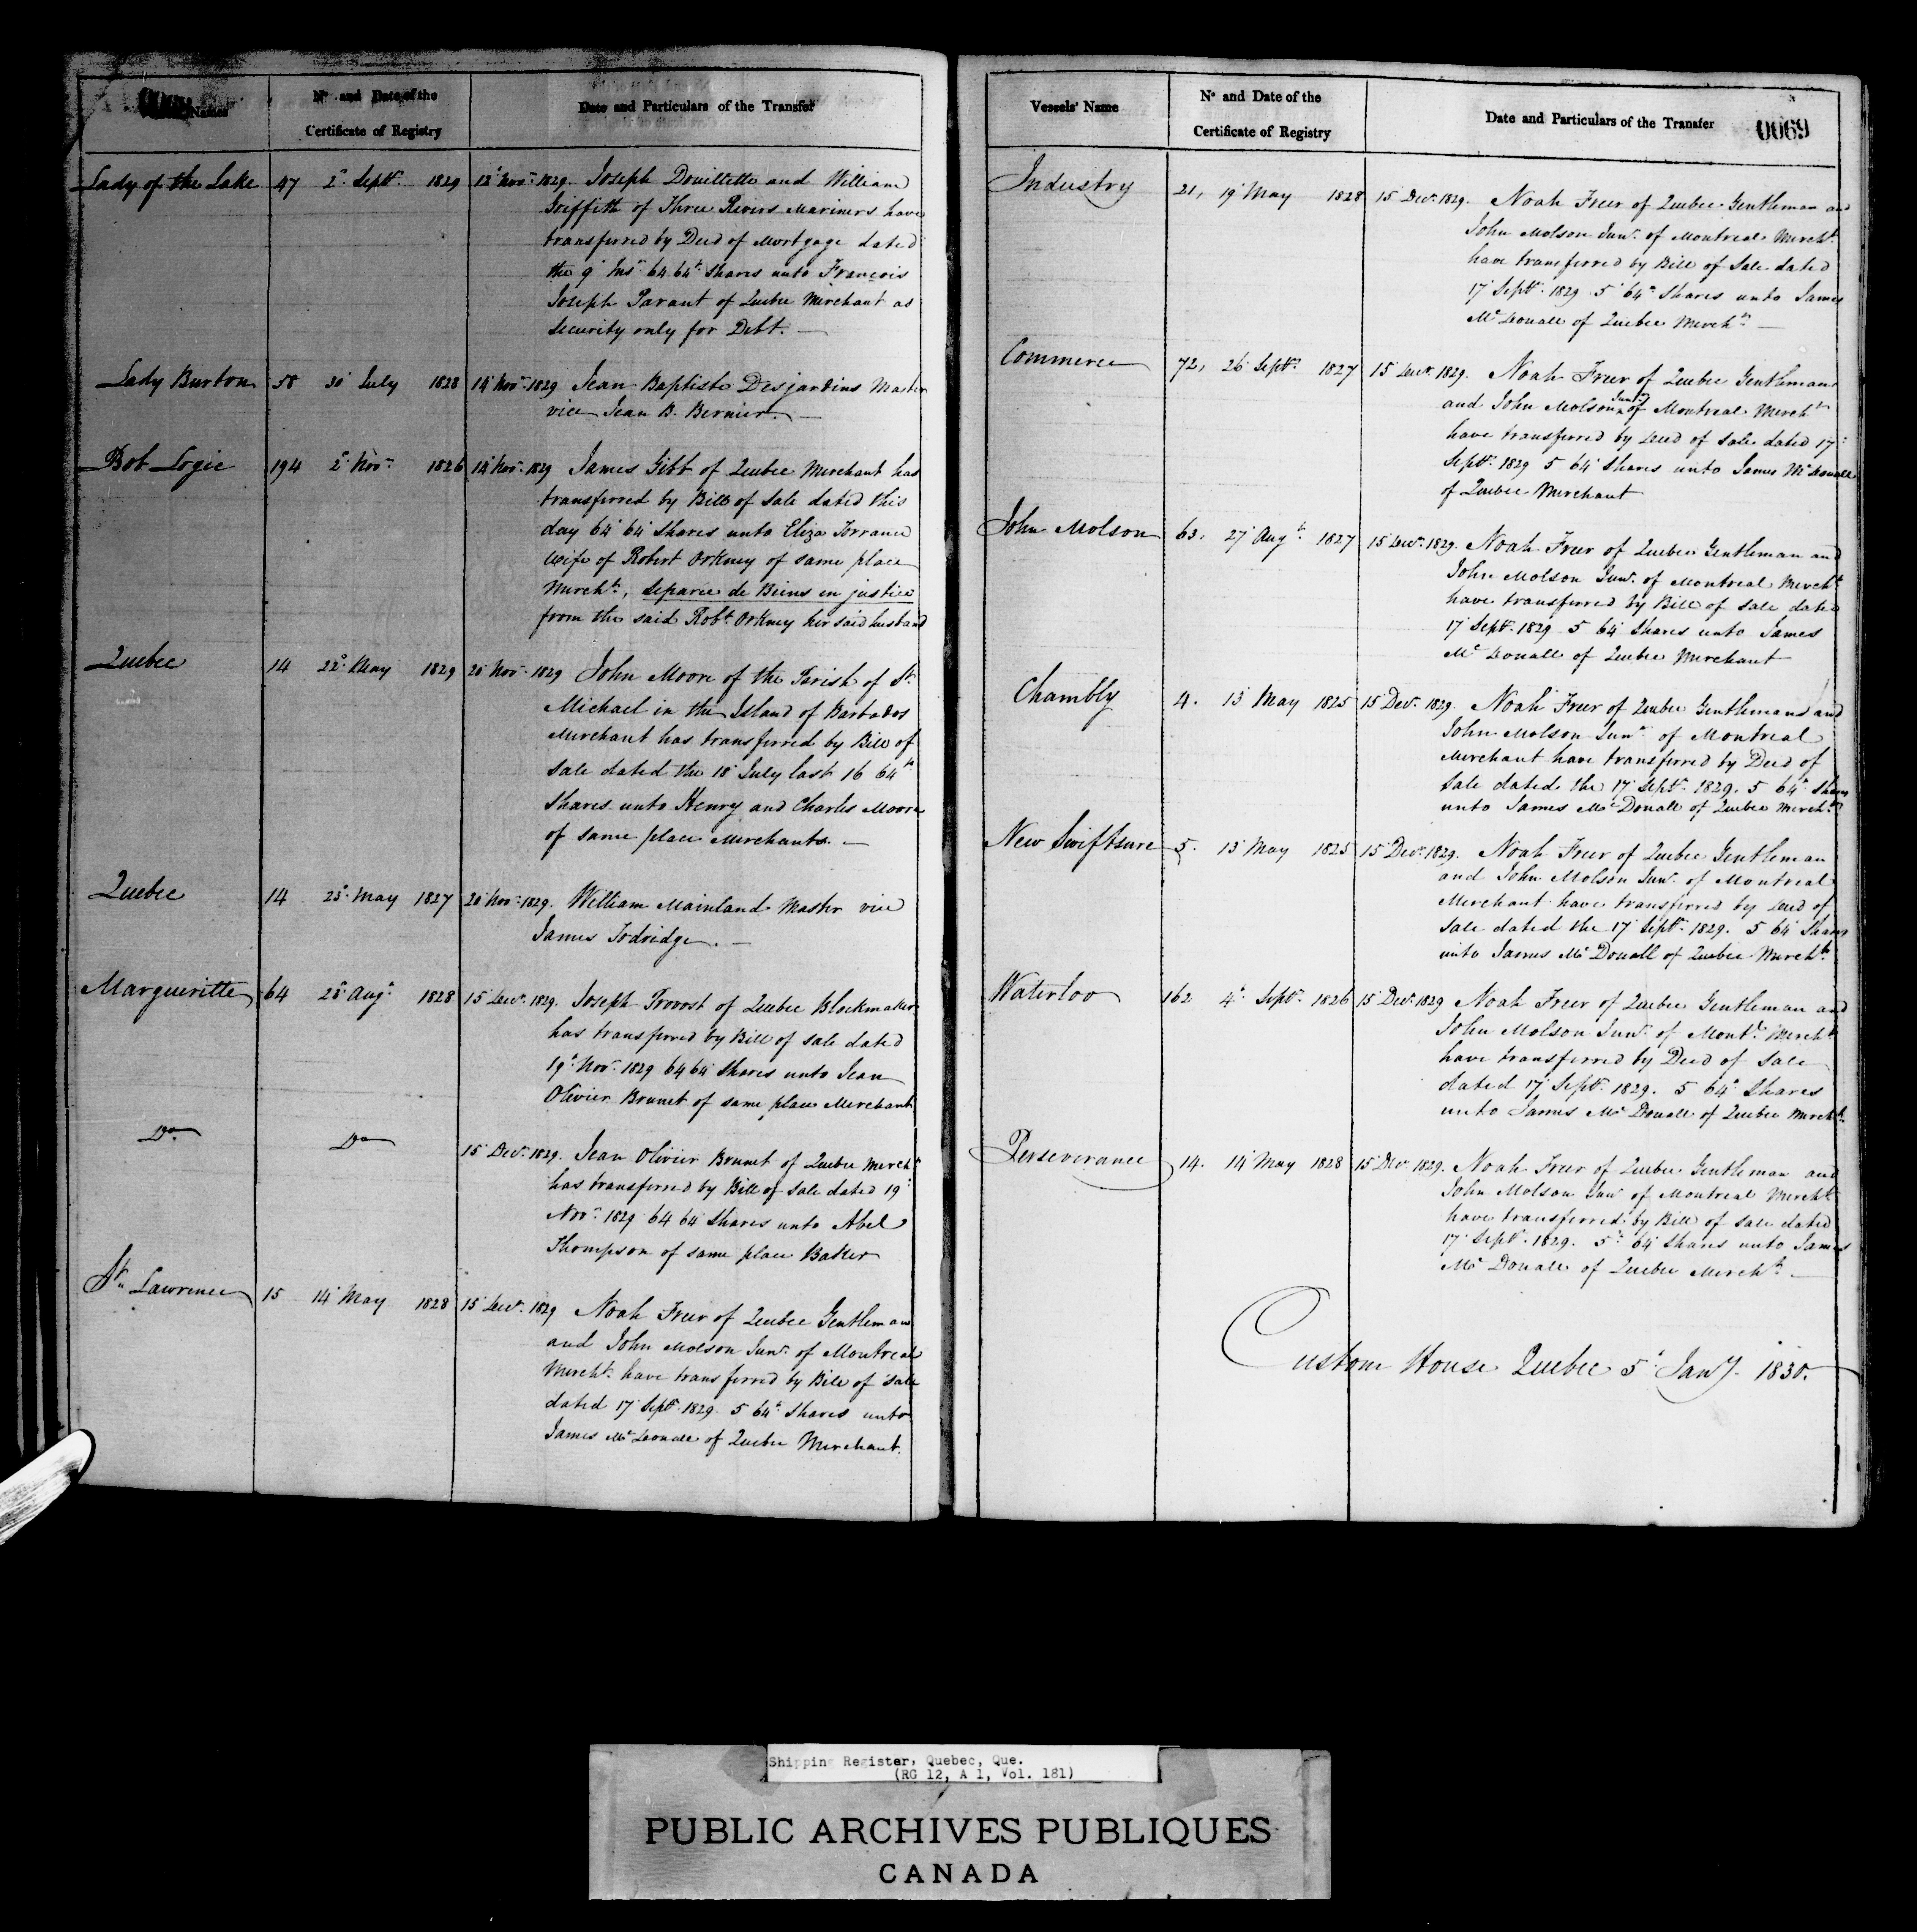 Names
No and Date of the
Certificate of Registry
Date and Particulars of the Transfer
Lady of the Lake 47 2d Septr 1829 12 Novr 1829. Joseph Douillette and William
Griffith of Three Rivers Mariners have
transferred by Deed of Mortgage dated
the 9 Inst 64 64th Shares unto François
Joseph Parant of Quebec Merchant as
Security only for Debt. —
Lady Burton 58 30 July 1828 14 Novr 1829 Jean Baptiste Desjardins Master
vice Jean B. Bernier. —
Bob Logie 194 2d Novr 1826 14 Novr 1829 James Gibb of Quebec Merchant has
transferred by Bill of Sale dated this
day 64 64 Shares unto Eliza Torrance
Wife of Robert Orkney of same place
Mercht, Separée de Biens en justice
from the said Robt Orkney her said husband
Quebec 14 22d May 1829 20 Novr 1829 John Moore of the Parish of St
Michael in the Island of Barbados
Merchant has transferred by Bill of
Sale dated the 18 July last 16 64th
Shares unto Henry and Charles Moore
of same place Merchants. —
Quebec 14 23d May 1827 20 Novr 1829. William Mainland Master vice
James Todridge. —
Margueritte 64 28 Augt 1828 15 Decr 1829. Joseph Provost of Quebec Blockmaker
has transferred by Bill of Sale dated
19 Novr 1829 64 64 Shares unto Jean
Olivier Brunet of same place Merchant
Do Do 15 Decr 1829. Jean Olivier Brunet of Quebec Mercht
has transferred by Bill of Sale dated 19
Novr 1829 64 64 Shares unto Abel
Thompson of same place Baker
St Lawrence 15 14 May 1828 15 Decr 1829 Noah Freer of Quebec Gentleman
and John Molson Junr of Montreal
Mercht have transferred by Bill of Sale
dated 17 Septr 1829 5 64th Shares unto
James Mc Douall of Quebec Merchant.
Vessels' Name
No and Date of the
Certificate of Registry
Date and Particulars of the Transfer
0069
Industry 21, 19 May 1828 15 Decr 1829. Noah Freer of Quebec Gentleman and
John Molson Junr of Montreal Mercht
have transferred by Bill of Sale dated
17 Septr 1829 5 64th Shares unto James
Mc Douall of Quebec Mercht —
Commerce 72, 26 Septr 1827 15 Decr 1829. Noah Freer of Quebec Gentleman
and John Molson Junr of Montreal Mercht
have transferred by Deed of Sale dated 17
Septr 1829 5 64 Shares unto James Mc Douall
of Quebec Merchant
John Molson 63, 27 Augt 1827 15 Decr 1829. Noah Freer of Quebec Gentleman and
John Molson Junr of Montreal Mercht
have transferred by Bill of Sale dated
17 Septr 1829 5 64 Shares unto James
Mc Douall of Quebec Merchant
Chambly 4. 13 May 1825 15 Decr 1829. Noah Freer of Quebec Gentleman and
John Molson Junr of Montreal
Merchant have transferred by Deed of
Sale dated the 17 Septr 1829. 5 64th Shares
unto James Mc Douall of Quebec Mercht
New Swiftsure 5. 13 May 1825 15 Decr 1829. Noah Freer of Quebec Gentleman
and John Molson Junr of Montreal
Merchant have transferred by Deed of
Sale dated the 17 Septr 1829. 5 64 Shares
unto James Mc Douall of Quebec Mercht
Waterloo 162 4 Septr 1826 15 Decr 1829 Noah Freer of Quebec Gentleman and
John Molson Junr of Montl Mercht
have transferred by Deed of Sale
dated 17 Septr 1829. 5 64 Shares
unto James Mc Douall of Quebec Mercht
Perseverance 14. 14 May 1828 15 Decr 1829. Noah Freer of Quebec Gentleman and
John Molson Junr of Montreal Mercht
have transferred by Bill of Sale dated
17 Septr 1829. 5 64 Shares unto James
Mc Douall of Quebec Mercht —
Custom House Quebec 5 Jany 1830.
Shipping Register, Quebec, Que.
(RG 12, A 1, Vol. 181)
PUBLIC ARCHIVES PUBLIQUES
CANADA